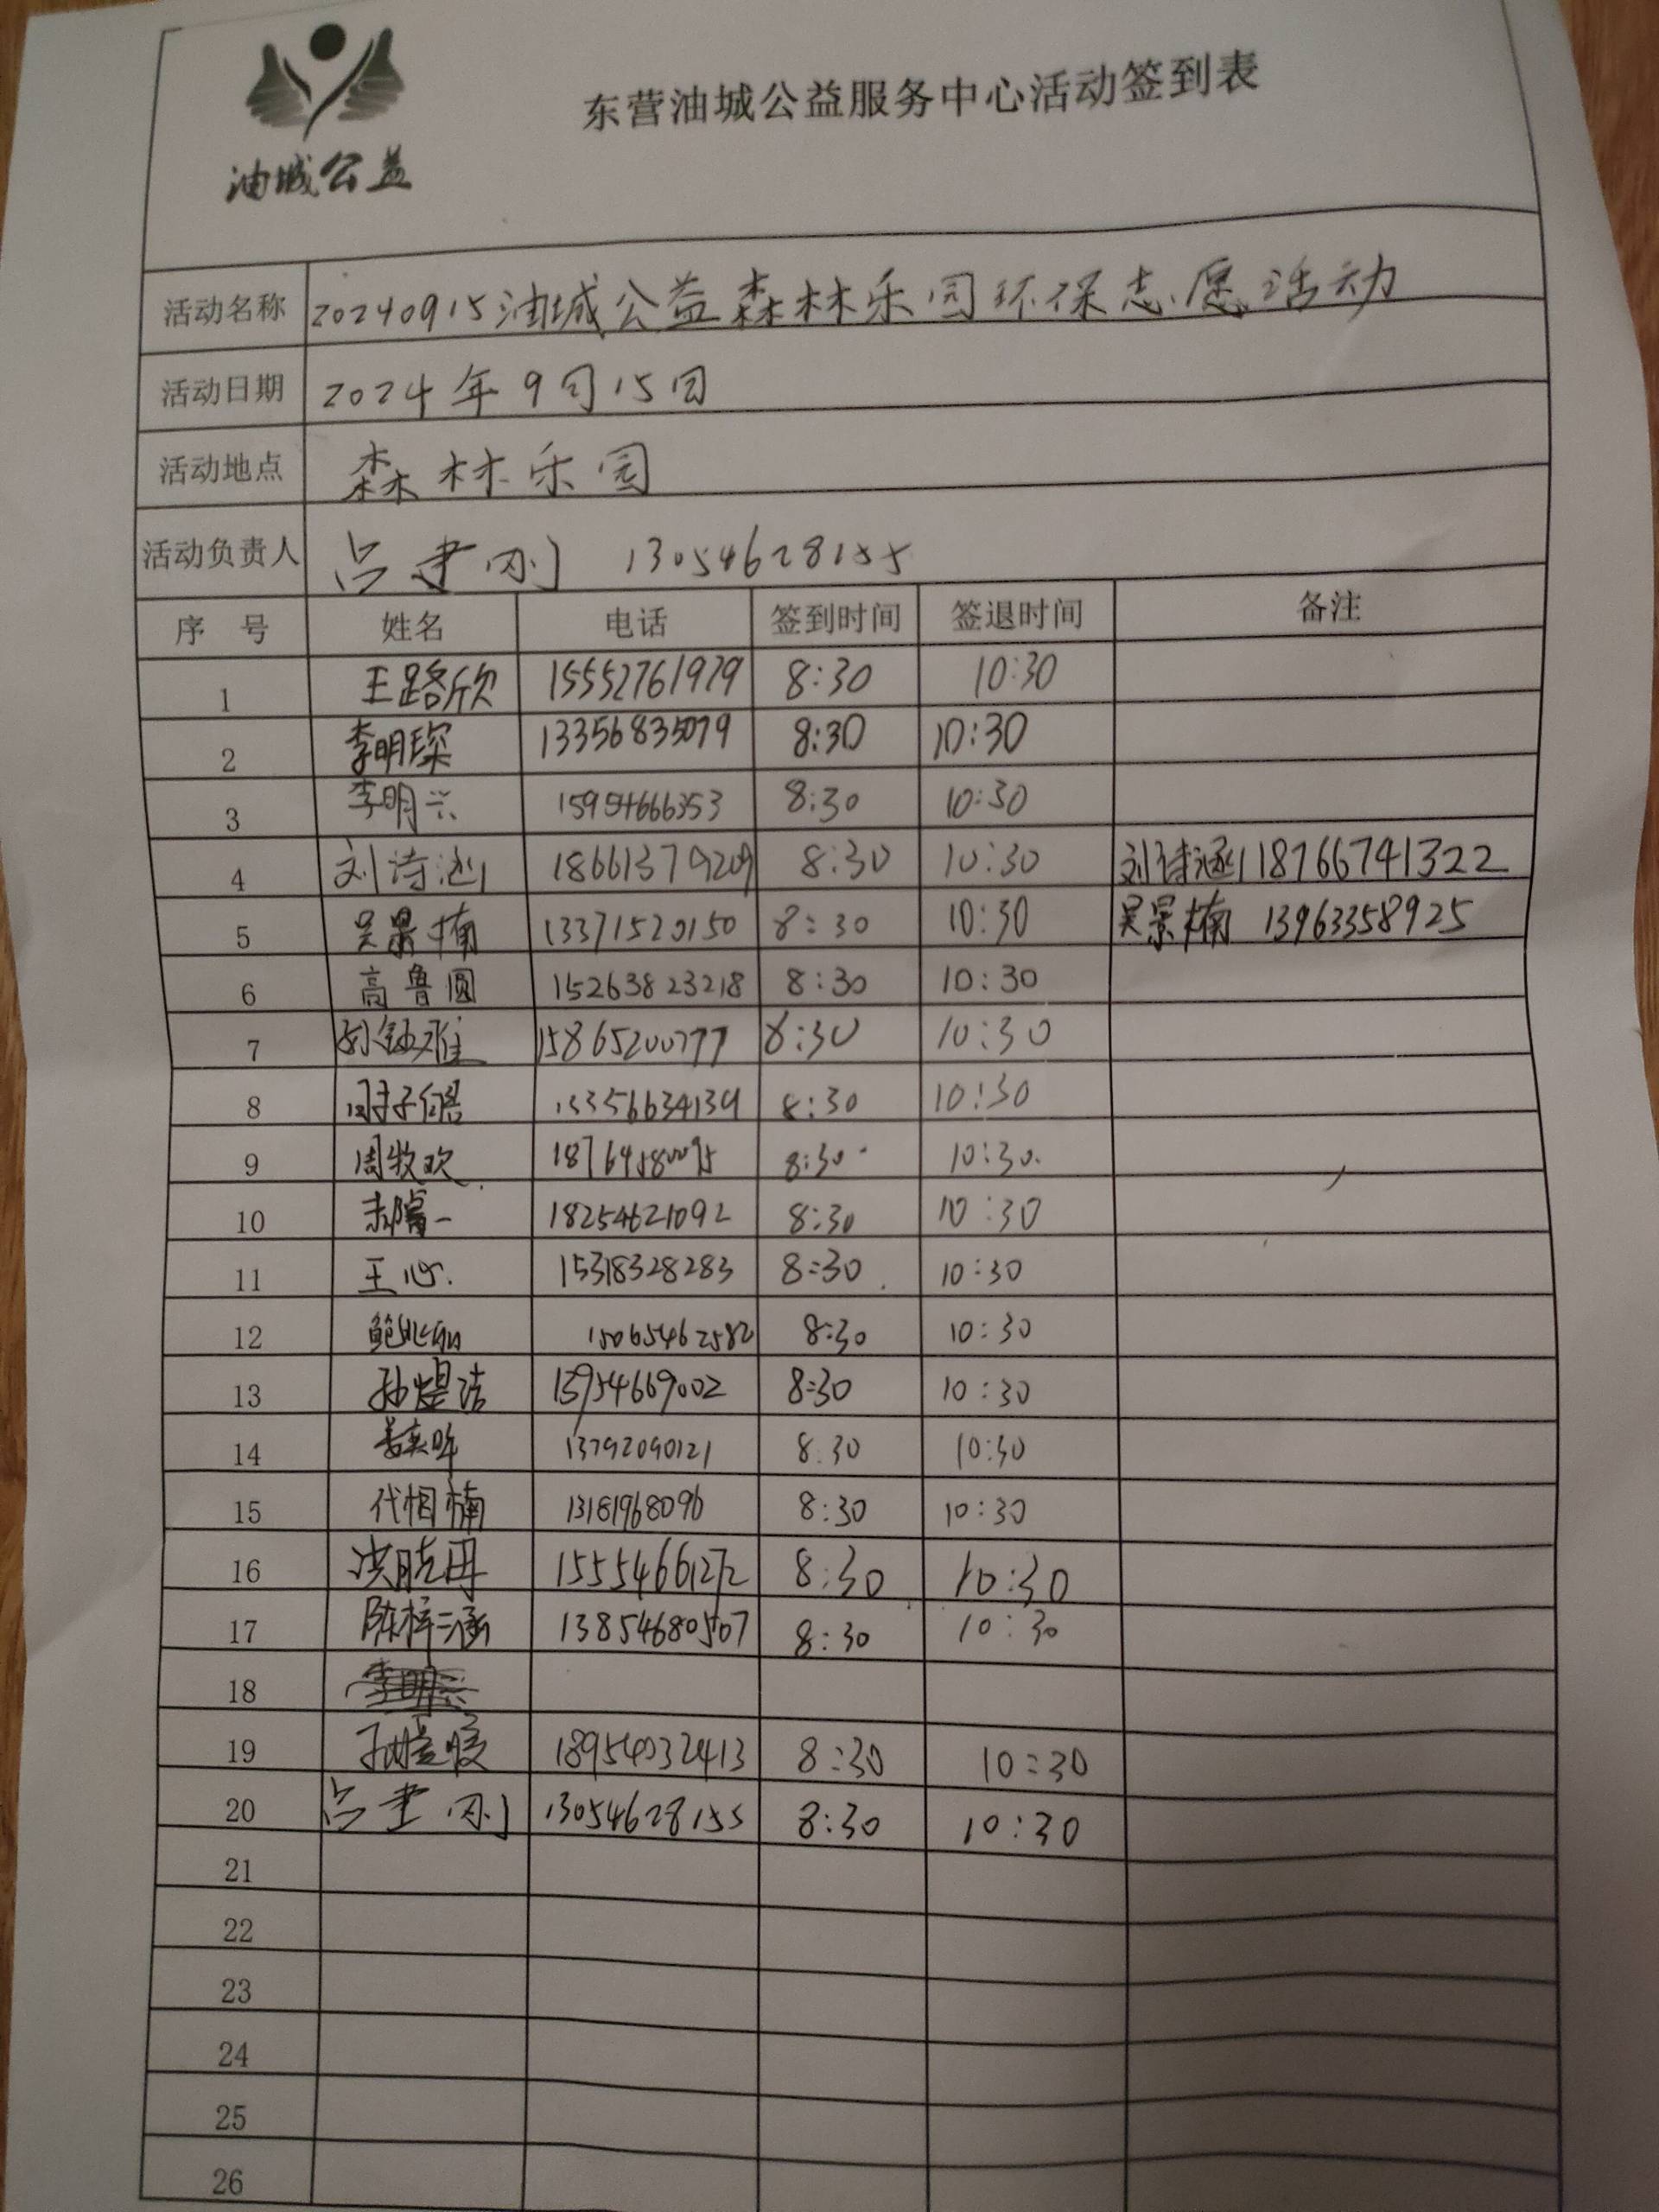 油城公益
东营油城公益服务中心活动签到表
活动名称 20240915油城公益森林乐园环保志愿活动
活动日期 2024年9月15日
活动地点 森林乐园
活动负责人 吕建刚 13054628155
序 号 姓名 电话 签到时间 签退时间 备注
1 王路欣 15552761979 8:30 10:30
2 李明琛 13356835079 8:30 10:30
3 李明兴 15954666353 8:30 10:30
4 刘诗涵 18661379209 8:30 10:30 刘诗涵 18766741322
5 吴景楠 13371520150 8:30 10:30 吴景楠 13963358925
6 高鲁圆 15263823218 8:30 10:30
7 15865200777 8:30 10:30
8 13356634139 8:30 10:30
9 周牧欢 8:30 10:30
10 18254621092 8:30 10:30
11 王心 15318328283 8:30 10:30
12 15065462582 8:30 10:30
13 孙煜洁 15954669002 8:30 10:30
14 13792090121 8:30 10:30
15 代相楠 13181968096 8:30 10:30
16 洪晓丹 15554661272 8:30 10:30
17 陈梓涵 13854680507 8:30 10:30
18 李明兴
19 18954032413 8:30 10:30
20 吕建刚 13054628155 8:30 10:30
21
22
23
24
25
26